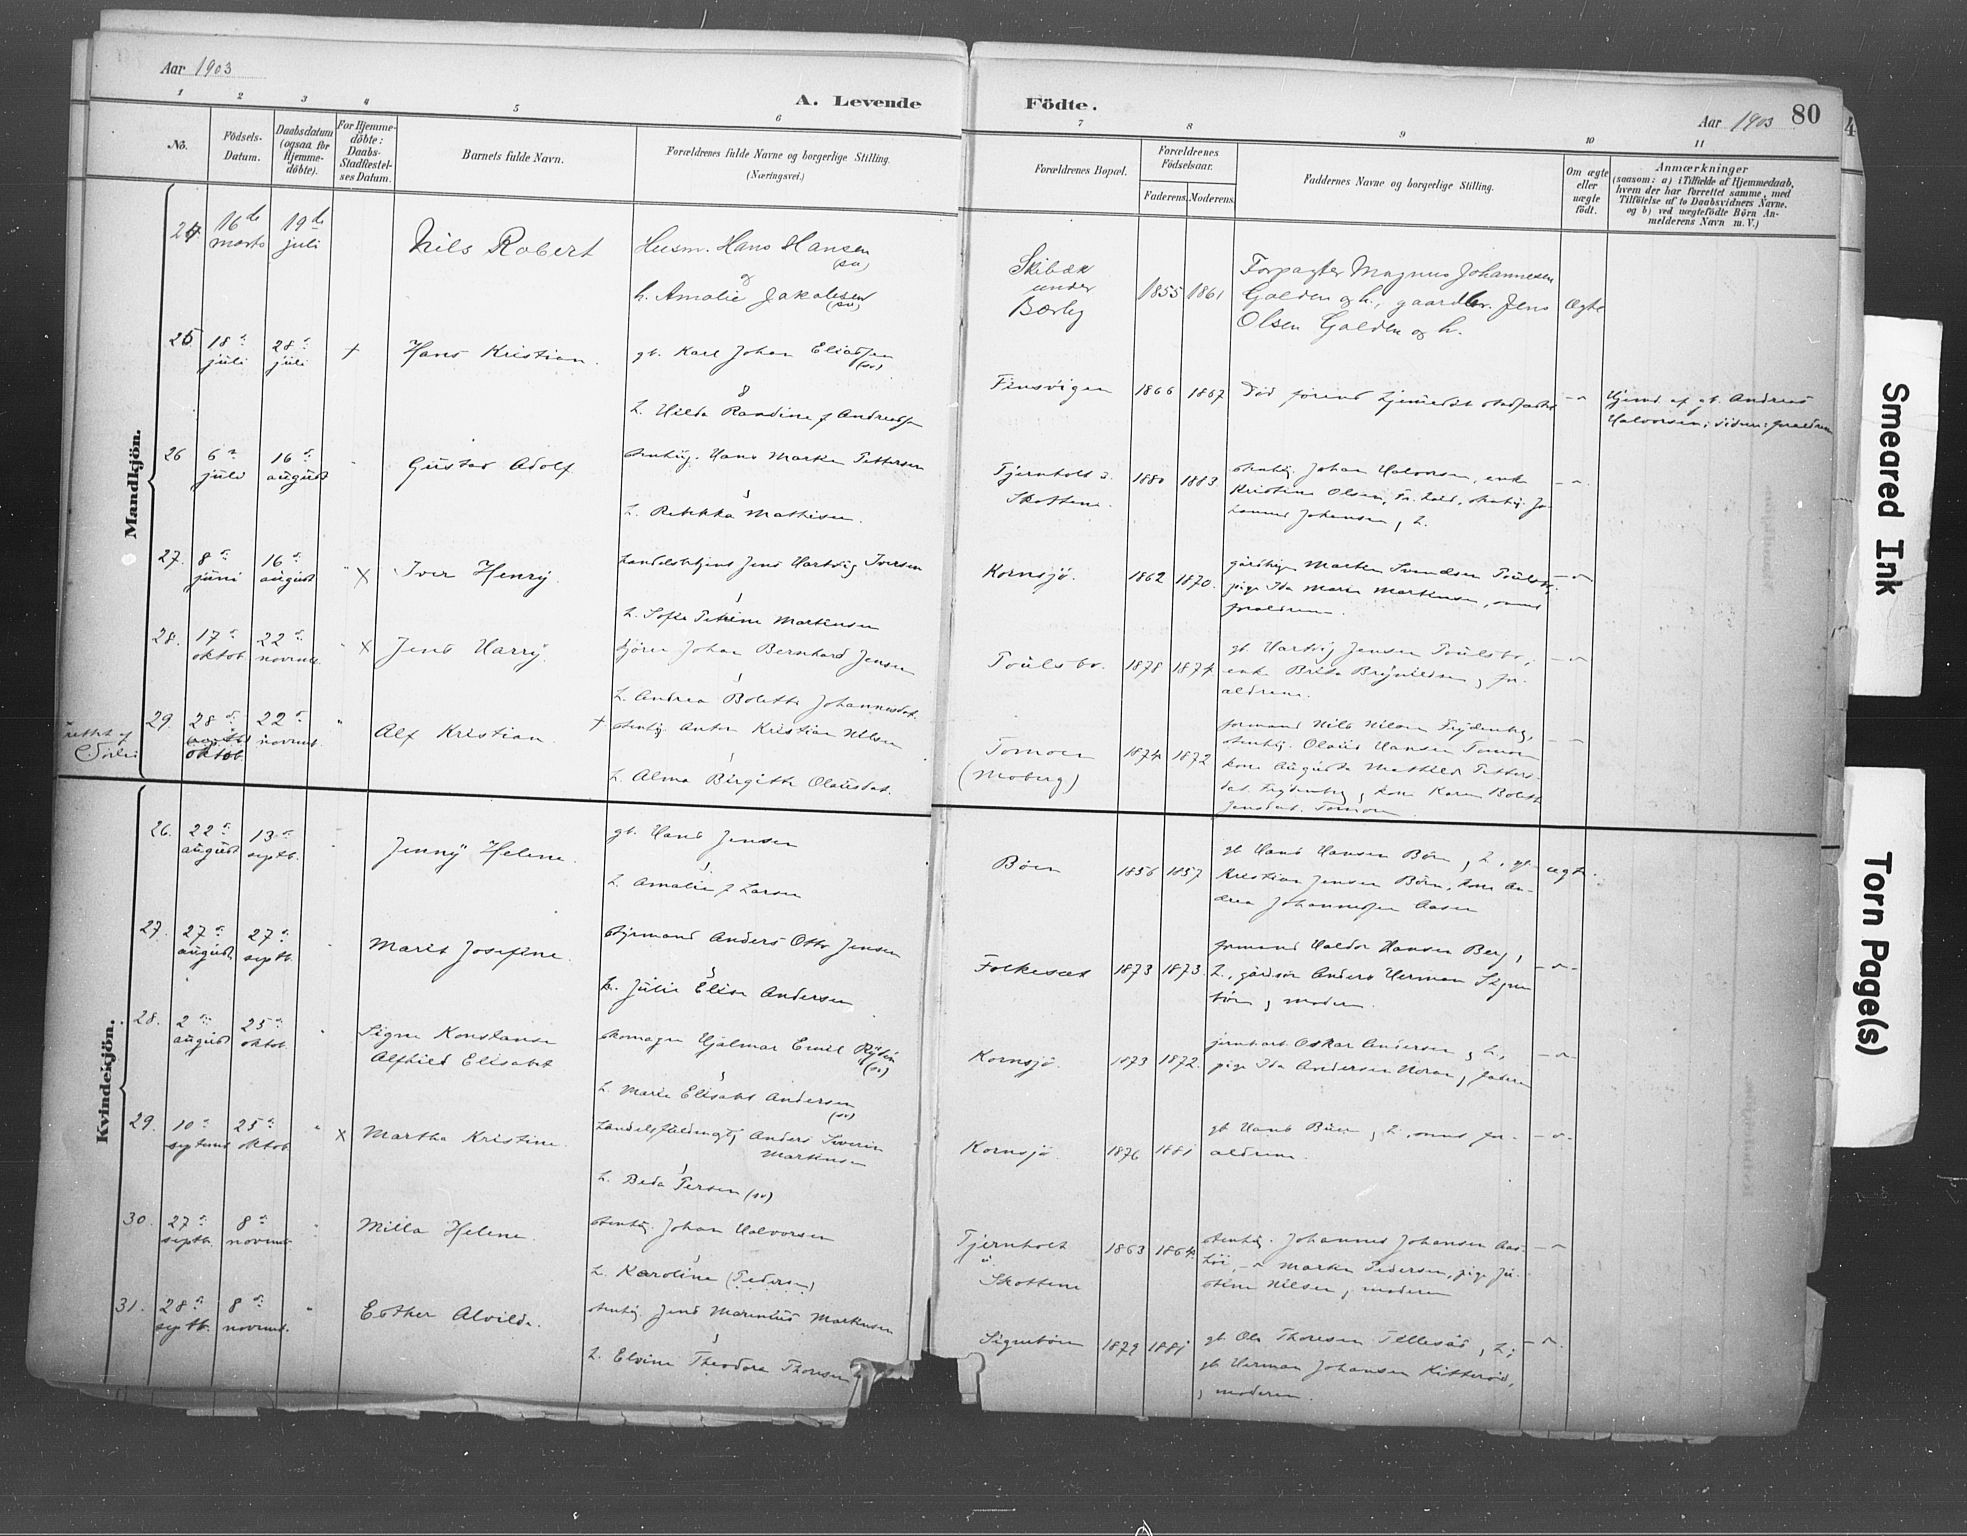 Aar 1903
A. Levende Födte.
Aar 1903 80
1 2 3 4 5 6 7 8 9 10 11
No.
Födsels-
Datum.
Daabsdatum
(ogsaa for
Hjemme-
döbte).
For Hjemme-
döbte:
Daabs-
Stadfæstel-
ses Datum.
Barnets fulde Navn.
Forældrenes fulde Navne og borgerlige Stilling.
(Næringsvei.)
Forældrenes Bopæl.
Forældrenes
Födselsaar.
Faderens. Moderens.
Faddernes Navne og borgerlige Stilling.
Om ægte
eller
uægte
födt.
Anmærkninger
(saasom: a) i Tilfælde af Hjemmedaab,
hvem der har forrettet samme, med
Tilföielse af to Daabsvidners Navne,
og b) ved uægtefödte Börn An-
melderens Navn m. V.)
Mandkjön.
24. 16de marts 19de juli
Nils Robert
Husm. Hans Hansen (sv)
og
h. Amalie Jakobsen (sv)
Skibæk
under
Bærby
1855 1861
Forpagter Magnus Johannesen
Galden og h., gaardbr. Jens
Olsen Galden og h.
Ægte
25 18 juli 28 juli +
Hans Kristian.
gb. Karl Johan Eliassen (sv)
h. Hilda Randine f Andreassen
1866 1867
Hjemd. af gb. Andreas
Halvorsen; siden: forældrene
26 6 juli 16 august
Gustav Adolf
Hans Martin Pettersen
h. Rebekka Mathisen.
Tjernholt u.
Skottene.
1880 1883
Johan Halvorsen, enke
Kristine Olsen,
Johansen, h.
27. 8 juni 16 august x
Iver Henry.
Jens Hartvig Iversen
h. Sofie Petrine Martinsen
Kornsjö.
1862 1870.
pige Ida Marie Markusen, samt
forældrene.
28. 17 oktob. 22 novemb. x
Jens Harry.
Johan Bernhard Jensen
h. Andrea Bolette Johannesdat.
Toulsbo.
1878 1874.
gb. Hartvig Jensen Toulsbo,
enke Brita Brynildsen, for-
ældrene.
rettet af
29. 28 oktob. 22 novemb.
Alf Kristian
+ Anton Kristian Nilsen
h. Alma Birgitte Olausdat.
Tomoen
(Moberg)
1874 1872
formand Nils Nilsen Frydenberg,
Olaus Hansen Tomoen
kone Augusta Mathilde Petters-
dat. Frydenberg, kone Karen Bolette
Jensdat. Tomoen.
Kvindekjön.
26. 22 august 13 septb.
Jenny Helene.
gb. Hans Jensen
h. Amalie f Larsen
Böen
1856 1857
gb Hans Hansen Böen, h., gb.
Kristian Jensen Böen, kone An-
drea Johannessen Aasen
ægte.
27. 27 august 27 septb.
Marit Josefine.
Styrmand Anders Otto Jensen
h. Julie Elise Andersen
Folkesæt
1873 1873.
formand Haldor Hansen Berg,
h., Anders Herman Signe-
böen, moderen.
28. 2 august 25 oktob.
Signe Konstanse
Alfhild Elisabet
skomager Hjalmar Emil Rydén (sv)
h. Marie Elisabet Andersen (sv)
Kornsjö.
1873 1872.
Oskar Andersen, h.,
pige Ida Andersen, faderen
29. 10 septemb. 25 oktob. x
Martha Kristine.
Anders Severin
Markusen
h. Beda Persen (sv)
Kornsjö.
1876 1881
gb Hans Büen, h., samt for-
ældrene.
30. 27 septb. 8 novemb.
Milla Helene.
Johan Halvorsen
h. Karoline (Pedersen)
Tjernholt
u
Skottene
1863 1864.
Johannes Johansen Aas-
höi, Martin Pedersen, pige Ju-
stine Nilsen, moderen
31. 28 septb. 8 novemb.
Esther Alvilde.
Jens Marenius Markusen
h. Elvine Theodora Thoresen
Signeböen
1879 1881
gb. Ole Thoresen Tellesæs, h.;
gb. Herman Johansen Kitteröd,
, moderen.
Smeared Ink
Torn Page(s)